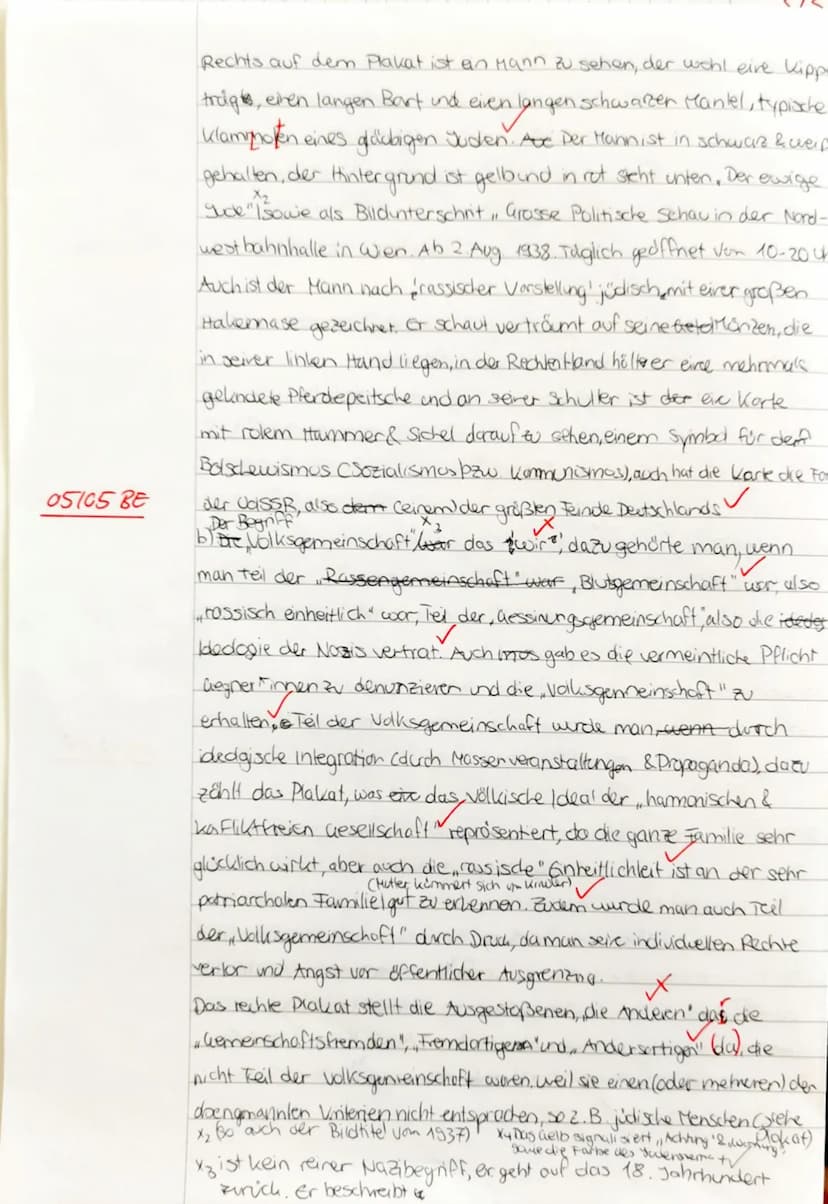 Rechts auf dem Plakat ist ein Mann zu sehen, der wohl eine Kipp
trägt, einen langen Bart und einen langen schwarzen Mantel, typische
Klammotten eines gläubigen Juden. Der Mann ist in schwarz & weiß
gehalten, der Hintergrund ist gelb und in rot steht unten „Der ewige
x2
Jude" sowie als Bildunterschrit „Grosse Politische Schau in der Nord-
westbahnhalle in Wien. Ab 2 Aug 1938. Täglich geöffnet von 10-20 U
Auch ist der Mann nach 'rassischer Vorstellung' jüdisch, mit einer großen
Hakennase gezeichnet. Er schaut verträumt auf seine Münzen, die
in seiner linken Hand liegen, in der Rechten Hand hält er eine mehrmals
Pferdepeitsche und an seiner Schulter ist eine Karte
mit rotem Hammer & Sichel darauf zu sehen, einem Symbol für den
Bolschewismus (Sozialismus bzw. Kommunismus), auch hat die Karte die Fo
05/05 BE
der UdSSR, also dem (einem) der größten Feinde Deutschlands
Der Begriff
x3
b) Die „Volksgemeinschaft" war das „wir", dazu gehörte man, wenn
man Teil der „Rassengemeinschaft" war „Blutsgemeinschaft" war, also
„rassisch einheitlich" war, Teil der „Gesinnungsgemeinschaft", also die
Ideologie der Nazis vertrat. Auch gab es die vermeintliche Pflicht
Gegner*innen zu denunzieren und die „Volksgemeinschaft" zu
erhalten. Teil der Volksgemeinschaft wurde man, wenn durch
ideologische Integration (durch Massenveranstaltungen & Propaganda), dazu
zählt das Plakat, was das völkische Ideal der „harmonischen &
konfliktfreien Gesellschaft" repräsentiert, da die ganze Familie sehr
glücklich wirkt, aber auch die „rassische" Einheitlichkeit ist an der sehr
(Mutter kümmert sich um Kinder)
patriarchalen Familie gut zu erkennen. Zudem wurde man auch Teil
der „Volksgemeinschaft" durch Druck, da man seine individuellen Rechte
verlor und Angst vor öffentlicher Ausgrenzung.
Das rechte Plakat stellt die Ausgestoßenen, „die Anderen" dar, die
„Gemeinschaftsfremden", „Fremdartigen" und „Andersartigen" (da), die
nicht Teil der Volksgemeinschaft waren, weil sie einen (oder mehreren) der
Kriterien nicht entsprachen, so z.B. jüdische Menschen (siehe
Plakat)
x2 (so auch der Bildtitel von 1937)
x4 Das Gelb signalisiert „Achtung" & Warnung,
sowie die Farbe des
x3 ist kein reiner Nazibegriff, er geht auf das 18. Jahrhundert
zurück. Er beschreibt